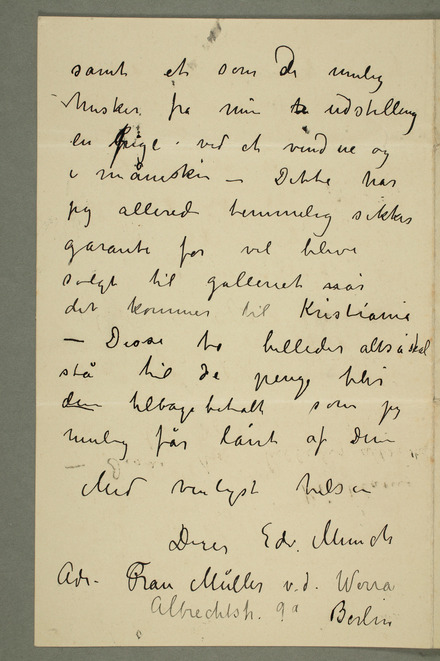 samt et som De mulig
husker fra min udstilling
en Pige ved et vindue og
i måneskin – Dette har
jeg allerede temmelig sikker
garanti for vil blive
solgt til galleriet når
det kommer til Kristiania
– Disse to billeder altså skal
stå til de penge blir
tilbagebetalt som jeg
mulig får lånt af Dem
Med venligst hilsen
Deres Edv. Munch
Adr. Frau Müller v.d. Werra
Albrechtstr. 9a
Berlin